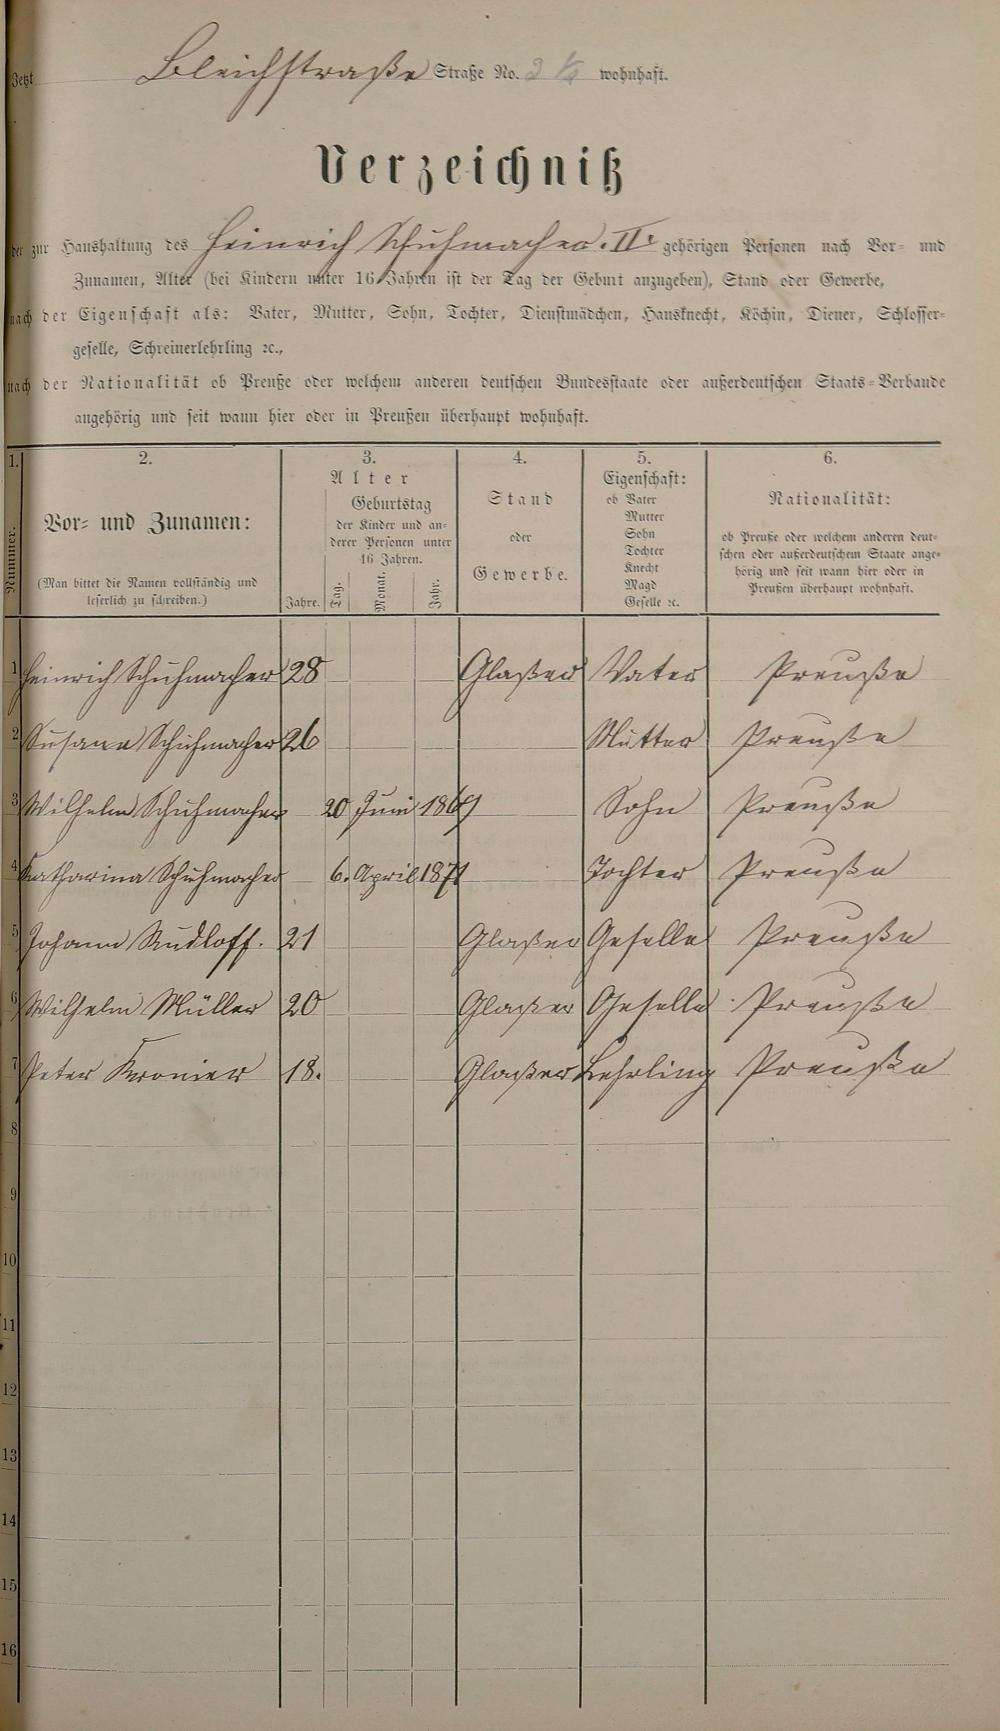 Jetzt Bleichstraße Straße No. wohnhaft.
Verzeichniß
der zur Haushaltung des Heinrich Schuhmacher. II. gehörigen Personen nach Vor- und
Zunamen, Alter (bei Kindern unter 16 Jahren ist der Tag der Geburt anzugeben), Stand oder Gewerbe,
nach der Eigenschaft als: Vater, Mutter, Sohn, Tochter, Dienstmädchen, Hausknecht, Köchin, Diener, Schlosser-
geselle, Schreinerlehrling ꝛc.,
nach der Nationalität ob Preuße oder welchem anderen deutschen Bundesstaate oder außerdeutschen Staats-Verbande
angehörig und seit wann hier oder in Preußen überhaupt wohnhaft.
1. 2. 3. 4. 5. 6.
Nummer.
Vor- und Zunamen:
(Man bittet die Namen vollständig und
leserlich zu schreiben.)
Alter
Jahre.
Geburtstag
der Kinder und an-
derer Personen unter
16 Jahren.
Tag. Monat. Jahr.
Stand
oder
Gewerbe.
Eigenschaft:
ob Vater
Mutter
Sohn
Tochter
Knecht
Magd
Geselle ꝛc.
Nationalität:
ob Preuße oder welchem anderen deut-
schen oder außerdeutschem Staate ange-
hörig und seit wann hier oder in
Preußen überhaupt wohnhaft.
1 Heinrich Schuhmacher 28 Glaßer Vater Preuße
2 Susana Schuhmacher 26 Mutter Preuße
3 Wilhelm Schuhmacher 20 Juni Sohn Preuße
4 Katharina Schuhmacher 6. April 1871 Tochter Preuße
5 Johann Rudloff. 21 Glaßer Geselle Preuße
6 Wilhelm Müller 20 Glaßer Geselle Preuße
7 Peter Kronier 18. Glaßer Lehrling Preuße
8
9
10
11
12
13
14
15
16